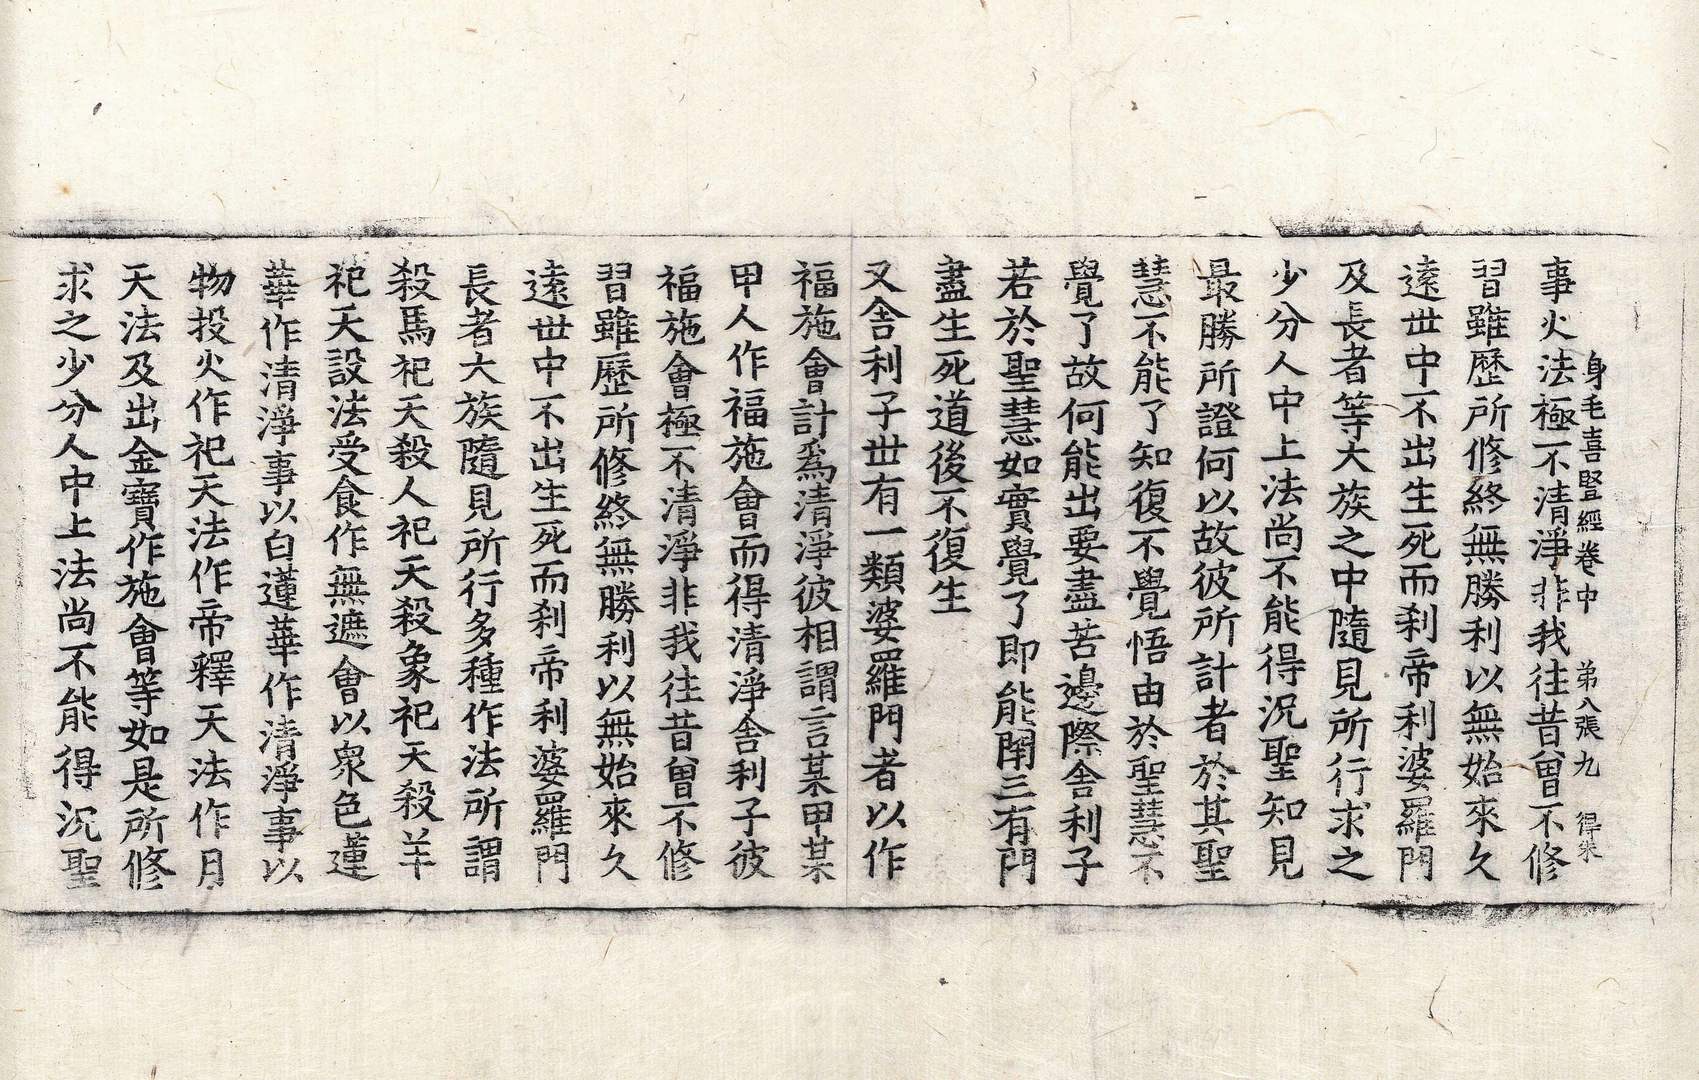 身毛喜竪經卷中 第八張 九 得朱
事火法極不清淨非我往昔曾不修
習雖歷所修終無勝利以無始來久
遠世中不出生死而刹帝利婆羅門
及長者等大族之中隨見所行求之
少分人中上法尚不能得況聖知見
最勝所證何以故彼所計者於其聖
慧不能了知復不覺悟由於聖慧不
覺了故何能出要盡苦邊際舍利子
若於聖慧如實覺了即能閉三有門
盡生死道後不復生
又舍利子世有一類婆羅門者以作
福施會計爲清淨彼相謂言某甲某
甲人作福施會而得清淨舍利子彼
福施會極不清淨非我往昔曾不修
習雖歷所修終無勝利以無始來久
遠世中不出生死而刹帝利婆羅門
長者大族隨見所行多種作法所謂
殺馬祀天殺人祀天殺象祀天殺羊
祀天設法受食作無遮會以衆色蓮
華作清淨事以白蓮華作清淨事以
物投火作祀天法作帝釋天法作月
天法及出金寶作施會等如是所修
求之少分人中上法尚不能得況聖